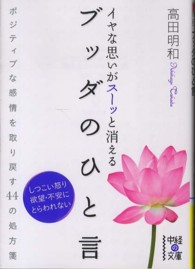 高田明和
イヤな思いがスーッと消える
ブッダのひと言
ポジティブな感情を取り戻す44の処方箋
しつこい怒り
欲望・不安に
とらわれない
中経の文庫